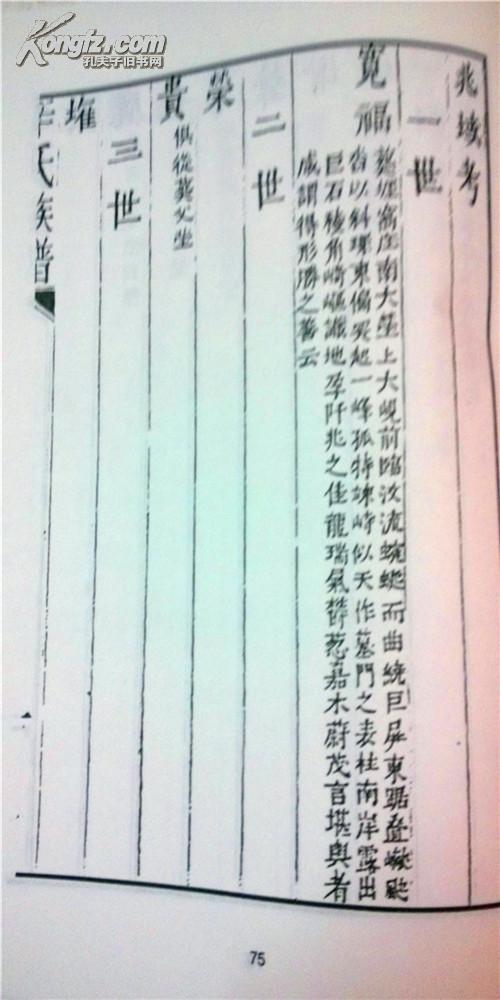 Kongfz.com
孔夫子旧书网
兆域考
一世
寬福
葬埕富庄南大塋上大峴前臨汶流蜿蜒而曲繞巨屏東踞疊巘
杳以斜環東偏突起一峰孤特竦峙似天作墓門之表柱南岸露出
巨石稜角崎嶇讖地孕阡兆之佳龍瑞氣鬱葱嘉木蔚茂言堪輿者
咸謂得形勝之善云
二世
榮
貴
俱從葬父塋
三世
㩁
氏族譜
75